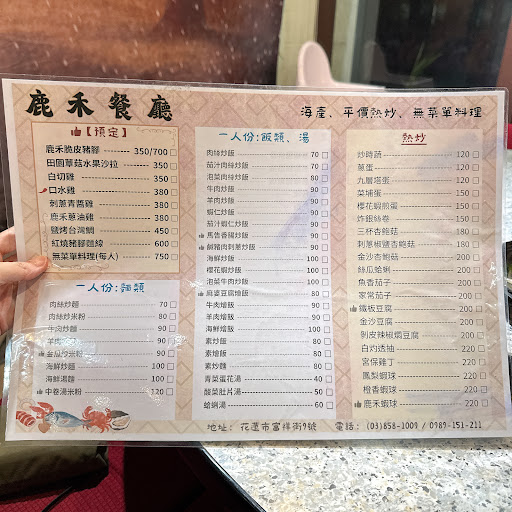 鹿禾餐廳
海產、平價熱炒、無菜單料理
【預定】
鹿禾脆皮豬腳 350/700
田園蕈菇水果沙拉 350
白切雞 350
口水雞 380
刺蔥青醬雞 380
鹿禾蔥油雞 380
鹽烤台灣鯛 450
紅燒豬腳麵線 600
無菜單料理(每人) 750
一人份:麵類
肉絲炒麵 70
肉絲炒米粉 80
牛肉炒麵 90
羊肉炒麵 90
金瓜炒米粉 90
海鮮炒麵 100
海鮮湯麵 100
中卷湯米粉 120
一人份:飯類、湯
肉絲炒飯 70
茄汁肉絲炒飯 70
泡菜肉絲炒飯 80
牛肉炒飯 90
羊肉炒飯 90
蝦仁炒飯 90
茄汁蝦仁炒飯 90
馬告香腸炒飯 90
鹹豬肉刺蔥炒飯 90
海鮮炒飯 100
櫻花蝦炒飯 100
泡菜牛肉炒飯 100
麻婆豆腐燴飯 80
牛肉燴飯 90
羊肉燴飯 90
海鮮燴飯 100
素炒飯 80
素燴飯 80
素炒麵 80
青菜蛋花湯 40
酸菜肚片湯 50
蛤蜊湯 60
熱炒
炒時蔬 120
蔥蛋 120
九層塔蛋 120
菜埔蛋 120
櫻花蝦煎蛋 120
炸銀絲卷 120
三杯杏鮑菇 180
刺蔥椒鹽杏鮑菇 180
金沙杏鮑菇 180
絲瓜蛤蜊 180
魚香茄子 180
家常茄子 180
鐵板豆腐 180
金沙豆腐 180
剝皮辣椒燜豆腐 180
白灼透抽 220
宮保雞丁 220
鳳梨蝦球 220
橙香蝦球 220
鹿禾蝦球 220
地址: 花蓮市富祥街9號 電話: (03)858-1009 / 0989-151-211